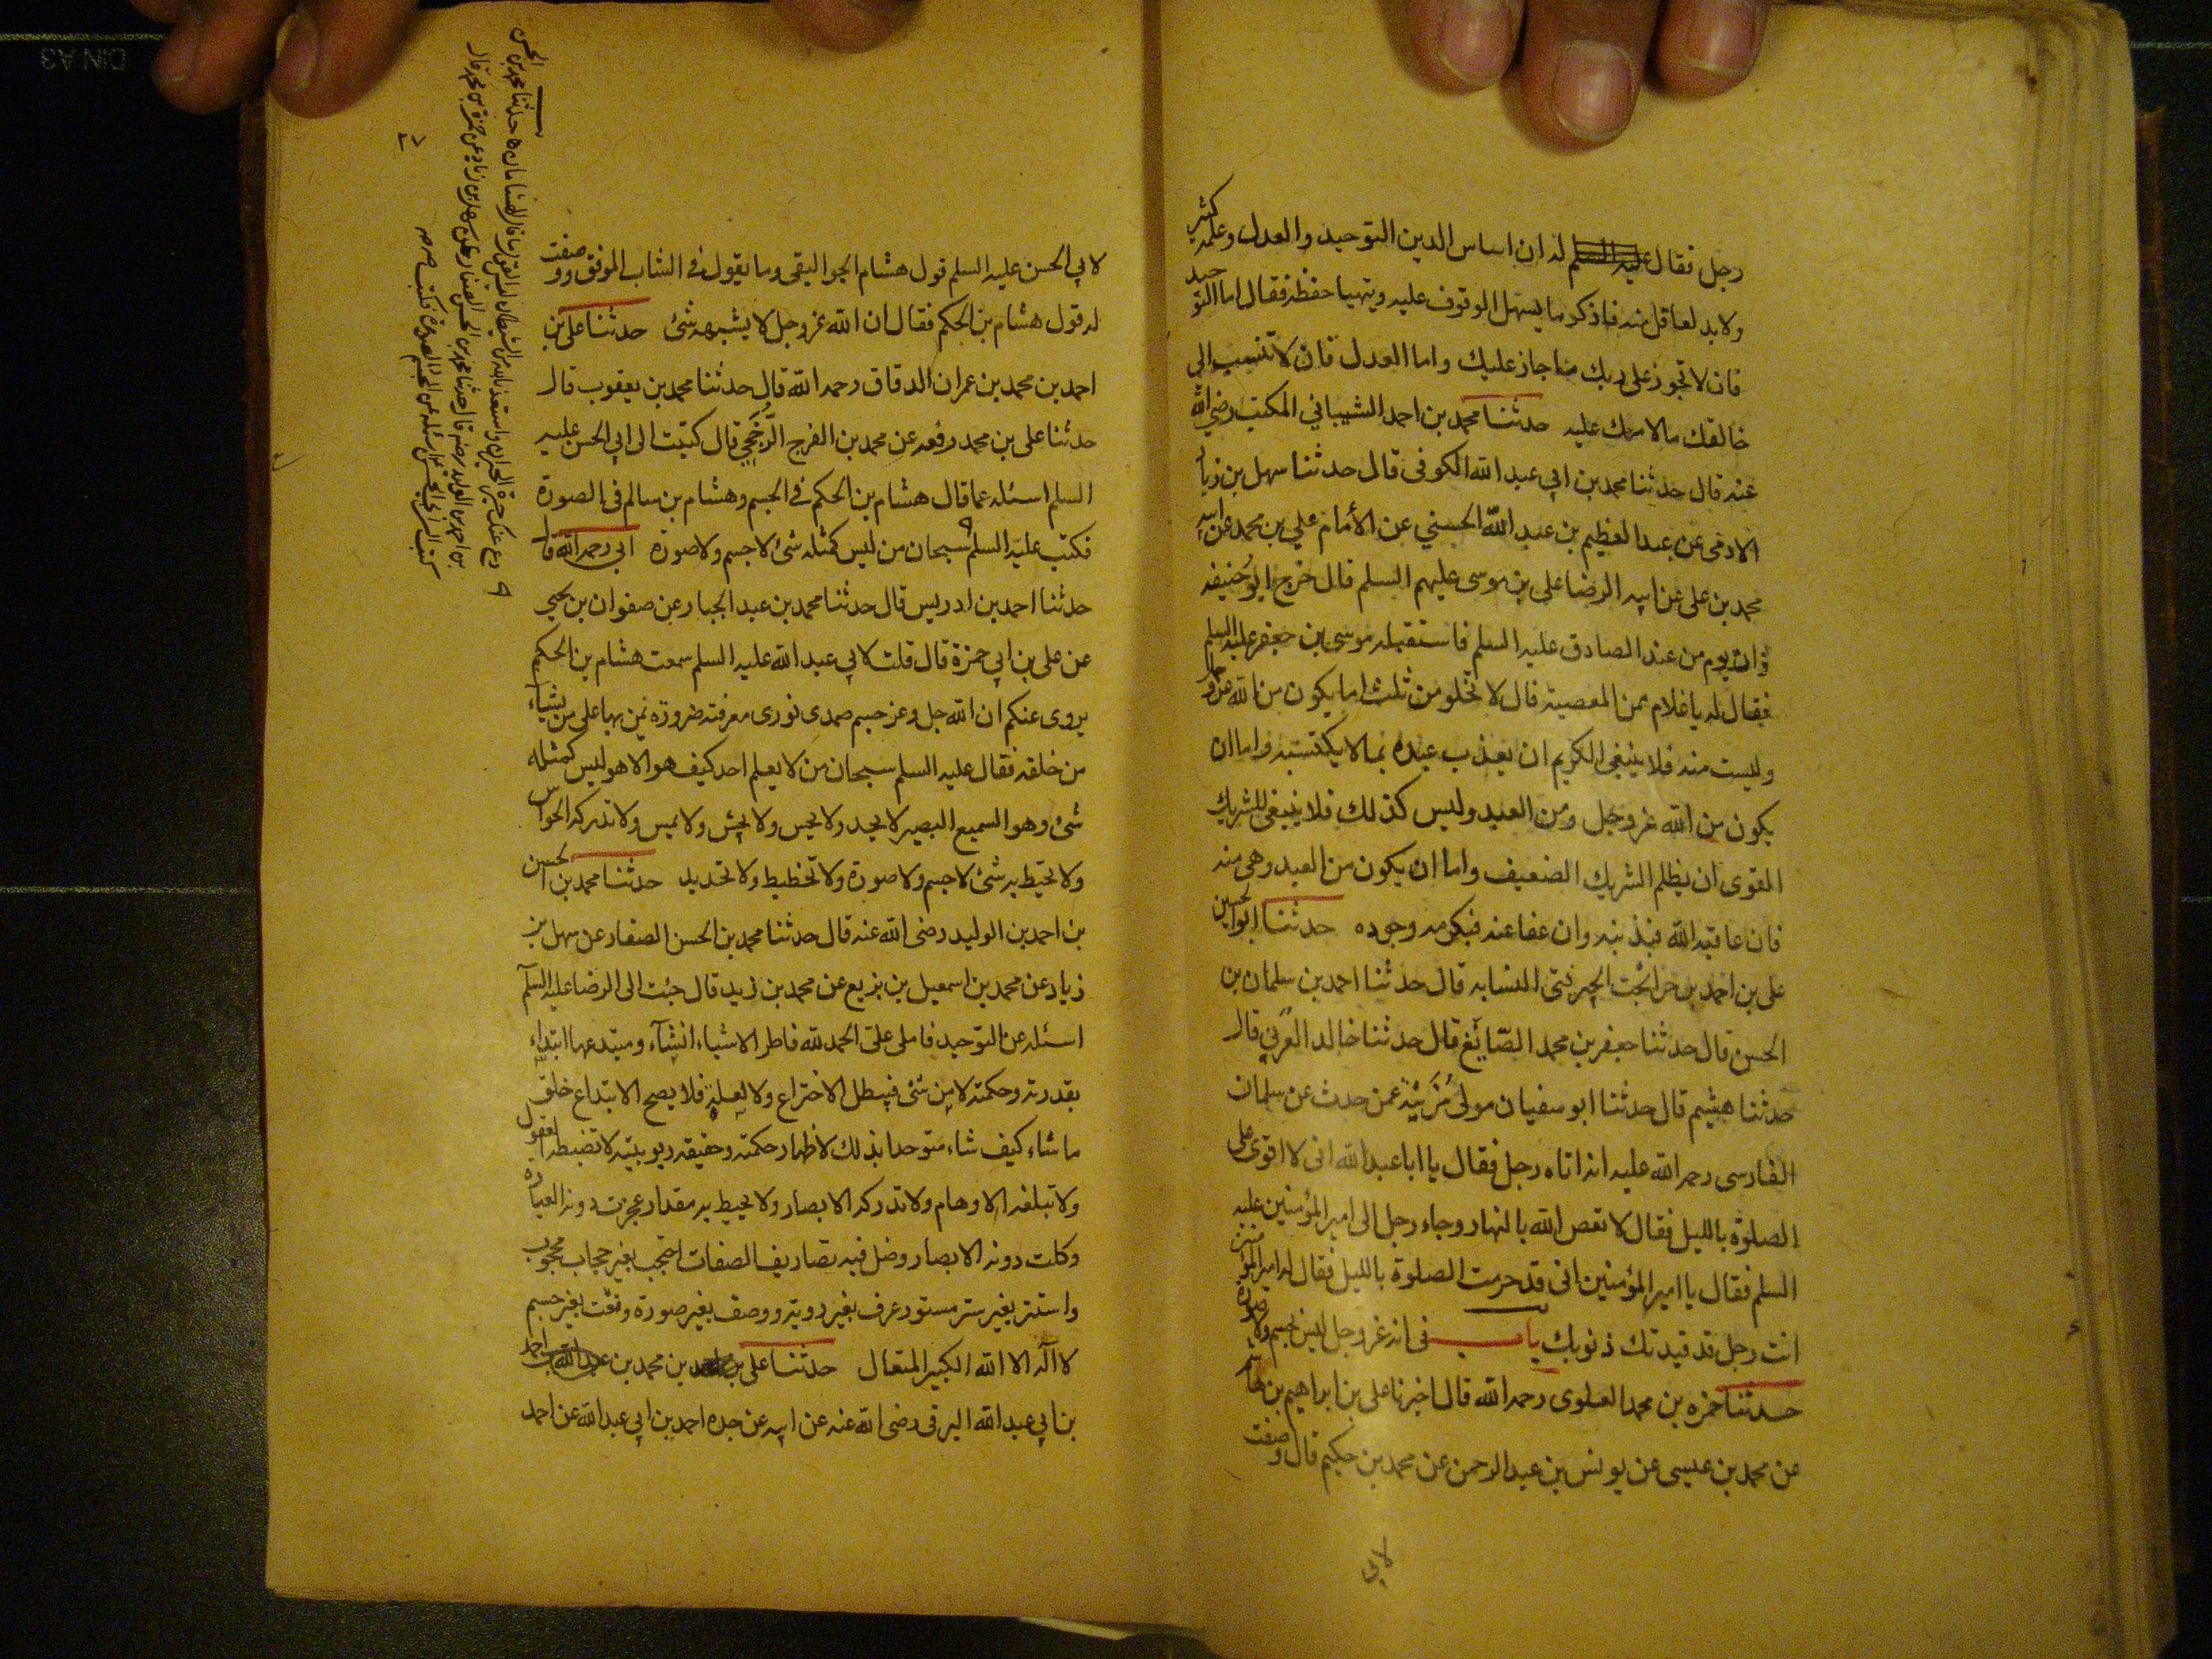 رجل فقال له ان اساس الدين التوحيد والعدل وعلمه كثير
ولا بد لعاقل منه فاذكر ما يسهل الوقوف عليه ويتهيا حفظه فقال اما التوحيد
فان لا تجوز على ربك ما جاز عليك واما العدل فان لا تنسب الى
خالقك ما لامك عليه حدثنا محمد بن احمد الشيباني المكتب رضي الله
عنه قال حدثنا محمد بن ابي عبد الله الكوفي قال حدثنا سهل بن زياد
الادمى عن عبد العظيم بن عبد الله الحسني عن الأمام علي بن محمد عن ابيه
محمد بن على عن ابيه الرضا على بن موسى عليهم السلم قال خرج ابو حنيفه
ذات يوم من عند الصادق عليه السلم فاستقبله موسى بن جعفر عليه السلم
فقال له يا غلام ممن المعصية قال لا تخلو من ثلث اما يكون من الله عز وجل
وليست منه فلا ينبغي الكريم ان يعذب عبده بما لا يكتسبه واما ان
يكون من الله عز وجل ومن العبد وليس كذلك فلا ينبغي للشريك
القوى ان يظلم الشريك الضعيف واما ان يكون من العبد وهي منه
فان عاقبه الله فبذنبه وان عفا عنه فبكرمه وجوده حدثنا ابو الحسين
على بن احمد بن حرابخت الجيرفتى النسابه قال حدثنا احمد بن سلمان بن
الحسن قال حدثنا جعفر بن محمد الصّائغ قال حدثنا خالد العرني قال
حدثنا هشيم قال حدثنا ابو سفيان مولى مُزَينَة عمن حدث عن سلمان
الفارسى رحمه الله عليه انه اتاه رجل فقال يا ابا عبد الله انى لا اقوى على
الصلوة بالليل فقال لا تعص الله بالنهار وجاء رجل الى امير المؤمنين عليه
السلم فقال يا امير المؤمنين انى قد حرمت الصلوة بالليل فقال له امير المؤمنين
انت رجل قد قيدتك ذنوبك باب فى انه عز وجل ليس بجسم ولا صورة
حدثنا حمزه بن محمد العلوى رحمه الله قال اخبرنا على بن ابراهيم بن هاشم
عن محمد بن عيسى عن يونس بن عبد الرحمن عن محمد بن حكيم قال وصفت
لابى
لابي الحسن عليه السلم قول هشام الجواليقى وما يقول في الشاب الموفق ووصفت
له قول هشام بن الحكم فقال ان الله عز وجل لا يشبهه شئ حدثنا على بن
احمد بن محمد بن عمران الدقاق رحمه الله قال حدثنا محمد بن يعقوب قال
حدثنا على بن محمد رفعه عن محمد بن الفرج الرُّخَّجي قال كتبت الى ابي الحسن عليه
السلم اسئله عما قال هشام بن الحكم في الجسم وهشام بن سالم في الصورة
فكتب عليه السلم سبحان من ليس كمثله شئ لا جسم ولا صورة ابى رحمه الله قال
حدثنا احمد بن ادريس قال حدثنا محمد بن عبد الجبار عن صفوان بن يحيى
عن على بن ابي حمزة قال قلت لابي عبد الله عليه السلم سمعت هشام بن الحكم
يروى عنكم ان الله جل وعز جسم صمدى نورى معرفته ضرورة يمن بها على من يشاء
من خلقه فقال عليه السلم سبحان من لا يعلم احد كيف هو الا هو ليس كمثله
شئ وهو السميع البصير لا يحد ولا يحس ولا يجس ولا يمس ولا تدركه الحواس
ولا يحيط به شئ لا جسم ولا صورة ولا تخطيط ولا تحديد حدثنا محمد بن الحسن
بن احمد بن الوليد رضى الله عنه قال حدثنا محمد بن الحسن الصفار عن سهل بن
زياد عن محمد بن اسمعيل بن بزيع عن محمد بن زيد قال جئت الى الرضا عليه السلم
اسئله عن التوحيد فاملى على الحمد لله فاطر الاشياء انشآء ومبتدعها ابتداء
بقدرته وحكمته لا من شئ فيبطل الاختراع ولا لعلة فلا يصح الابتداع خلق
ما شاء كيف شاء متوحدا بذلك لاظهار حكمته وحقيقه ربوبيته لا تضبطه العقول
ولا تبلغه الاوهام ولا تدركه الابصار ولا يحيط به مقدار عجزت دونه العبارة
وكلت دونه الابصار وضل فيه تصاريف الصفات احتجب بغير حجاب محجوب
واستتر بغير ستر مستور عرف بغير رويته ووصف بغير صورة ونعت بغير جسم
لا اله الا الله الكبير المتعال حدثنا على بن احمد بن محمد بن عبد الله بن احمد
بن ابي عبد الله البرقى رضى الله عنه عن ابيه عن جده احمد بن ابي عبد الله عن احمد
دع عنك حيرة الحيران واستعذ بالله من الشيطان
حدثنا محمد بن الحسن
بن احمد بن الوليد رضه قال حدثنا محمد بن الحسن الصفار عن سهل بن زياد عن حمزة بن محمد قال
كتبت الى ابي الحسن اسئله عن الجسم والصورة فكتب